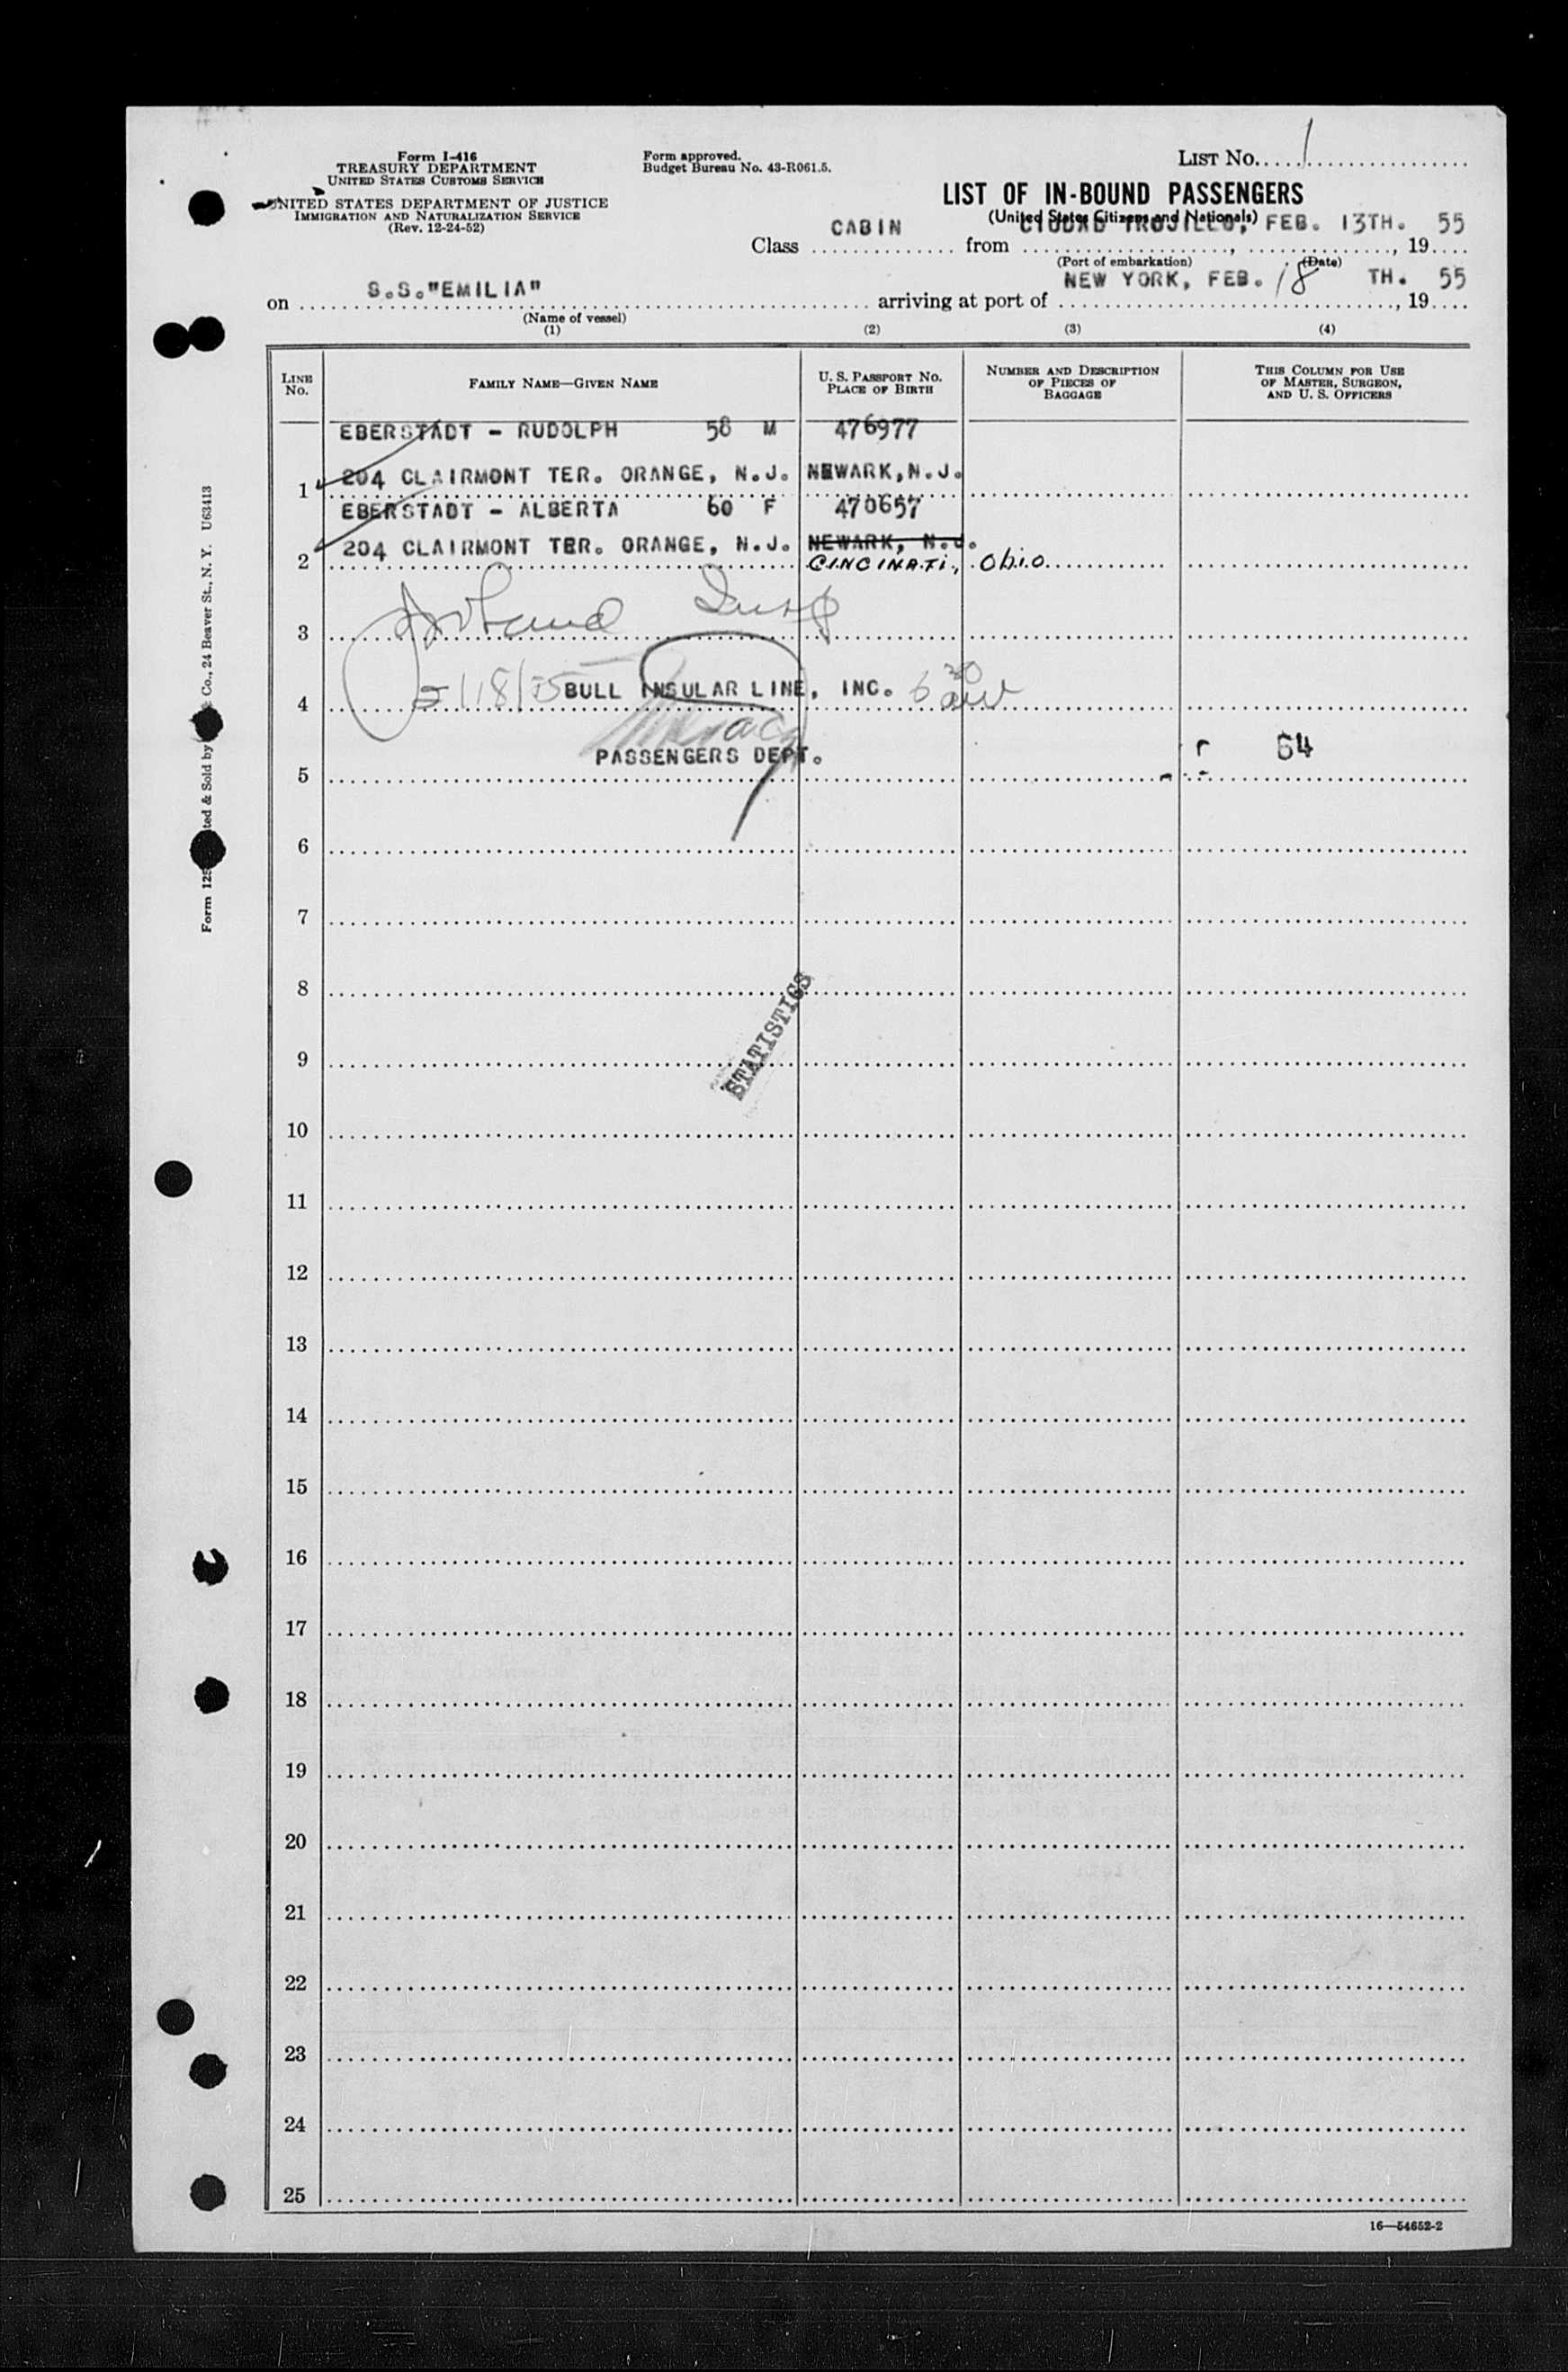 Form I-416
TREASURY DEPARTMENT
UNITED STATES CUSTOMS SERVICE
UNITED STATES DEPARTMENT OF JUSTICE
IMMIGRATION AND NATURALIZATION SERVICE
(Rev. 12-24-52)
Form approved.
Budget Bureau No. 43-R061.5.
LIST No. 1
LIST OF IN-BOUND PASSENGERS
(United States Citizens and Nationals)
Class CABIN from CIUDAD TRUJILLO, FEB. 13TH. , 1955
(Port of embarkation) (Date)
on S.S."EMILIA" arriving at port of NEW YORK, FEB. 18 TH. , 1955
(Name of vessel)
(1) (2) (3) (4)
LINE No. FAMILY NAME—GIVEN NAME U. S. PASSPORT No. PLACE OF BIRTH NUMBER AND DESCRIPTION OF PIECES OF BAGGAGE THIS COLUMN FOR USE OF MASTER, SURGEON, AND U. S. OFFICERS
EBERSTADT - RUDOLPH 58 M 476977
1 204 CLAIRMONT TER. ORANGE, N.J. NEWARK,N.J.
EBERSTADT - ALBERTA 60 F 470657
2 204 CLAIRMONT TER. ORANGE, N.J. NEWARK, N.J.
CINCINATI, Ohio
3 Insp
4 2/18/55 BULL INSULAR LINE, INC.
PASSENGERS DEPT. 64
5
6
7
8
STATISTICS
9
10
11
12
13
14
15
16
17
18
19
20
21
22
23
24
25
16—54652-2
Co., 24 Beaver St., N. Y. U63413